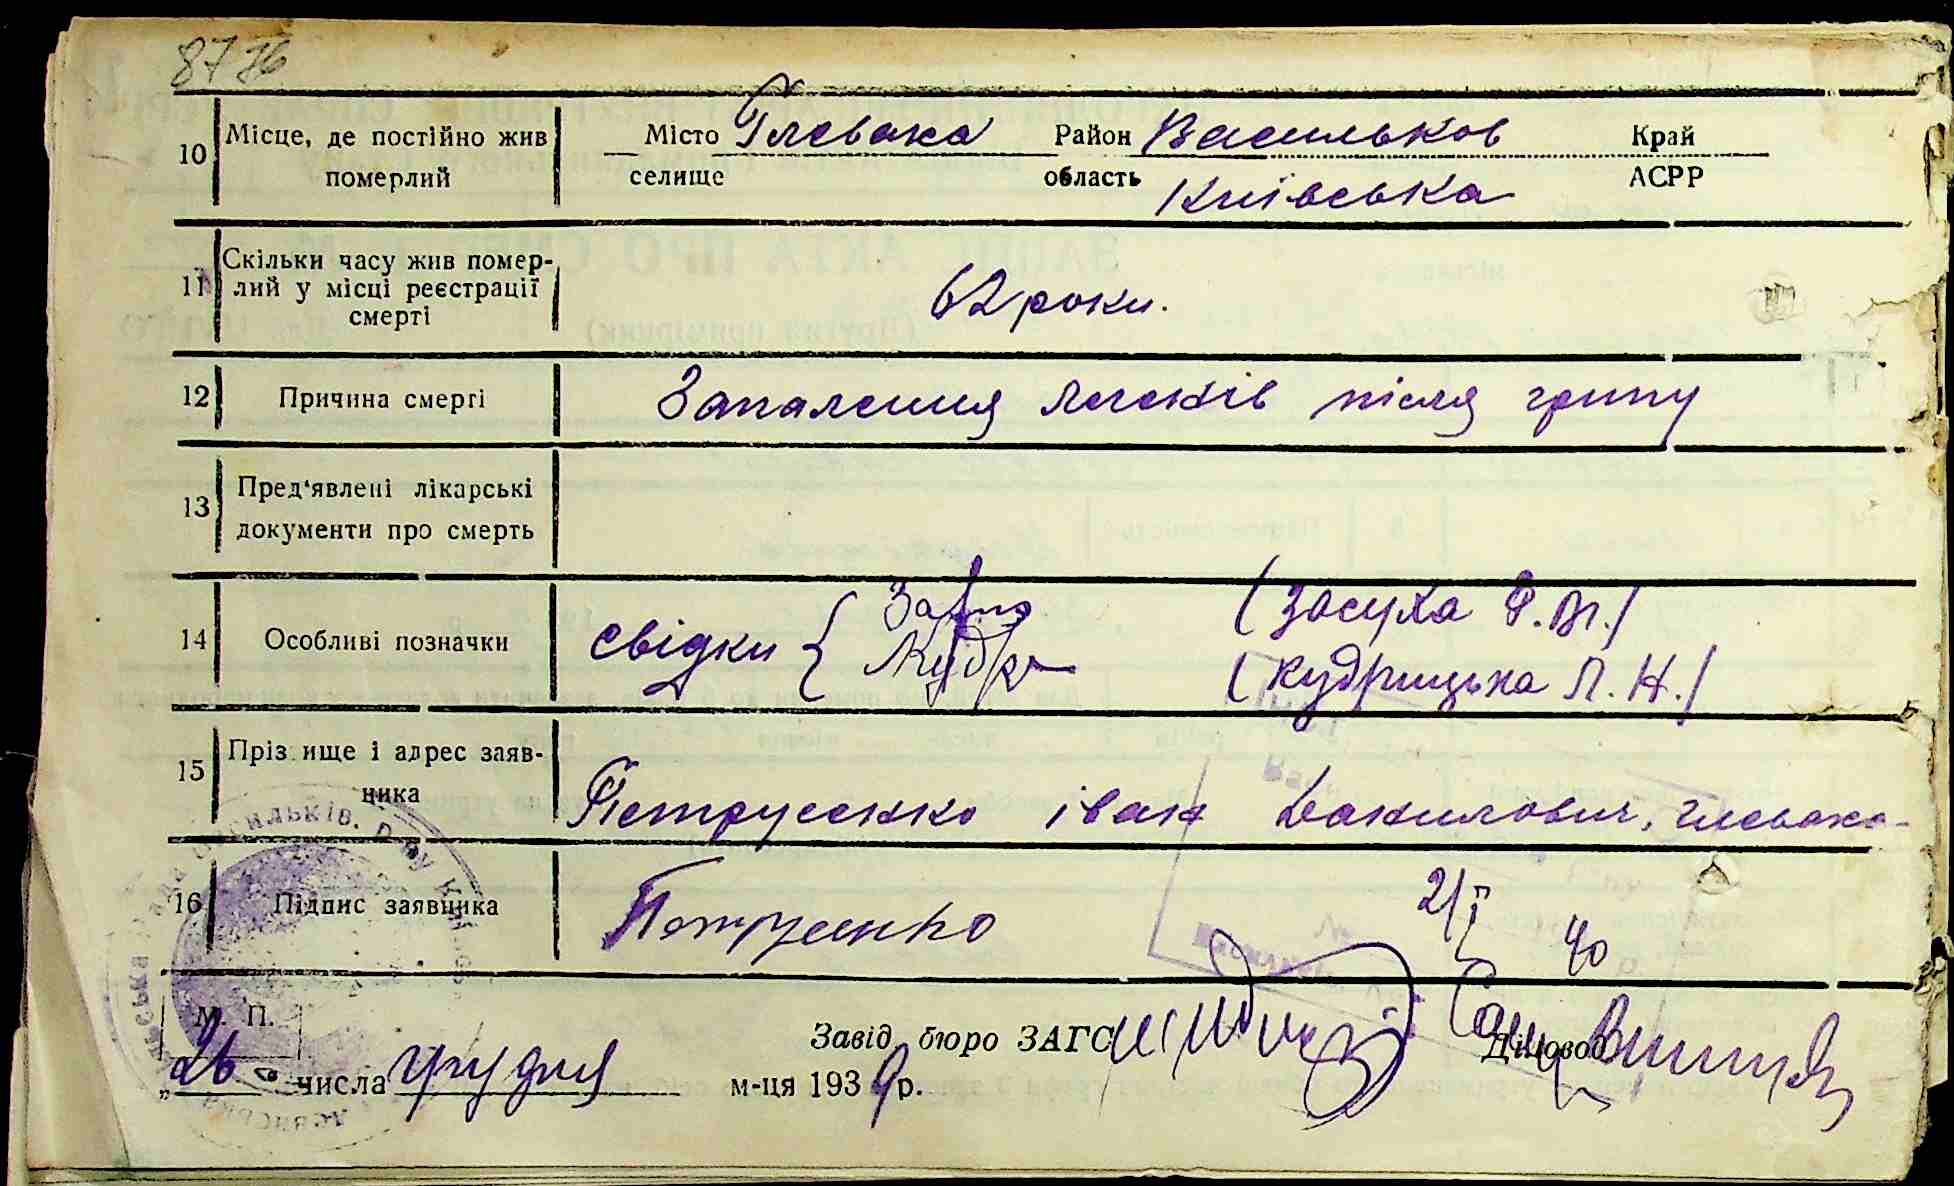 8776
10 Місце, де постійно жив померлий
Місто Глеваха Район Васильков Край
селище область Київська АСРР
11 Скільки часу жив помер-
лий у місці реєстрації
смерті
62 роки.
12 Причина смерті Запалення легенів після грипу
13 Пред'явлені лікарські
документи про смерть
14 Особливі позначки свідки { (Засуха
(Кудрицька Л. Н.)
15 Пріз ище і адрес заяв-
ника
Петрусенко іван Данилович, глеваха
16 Підпис заявника Петрусенко
2/I 40
М. П.
Завід. бюро ЗАГС Діловод
"26" числа грудня м-ця 1939 р.